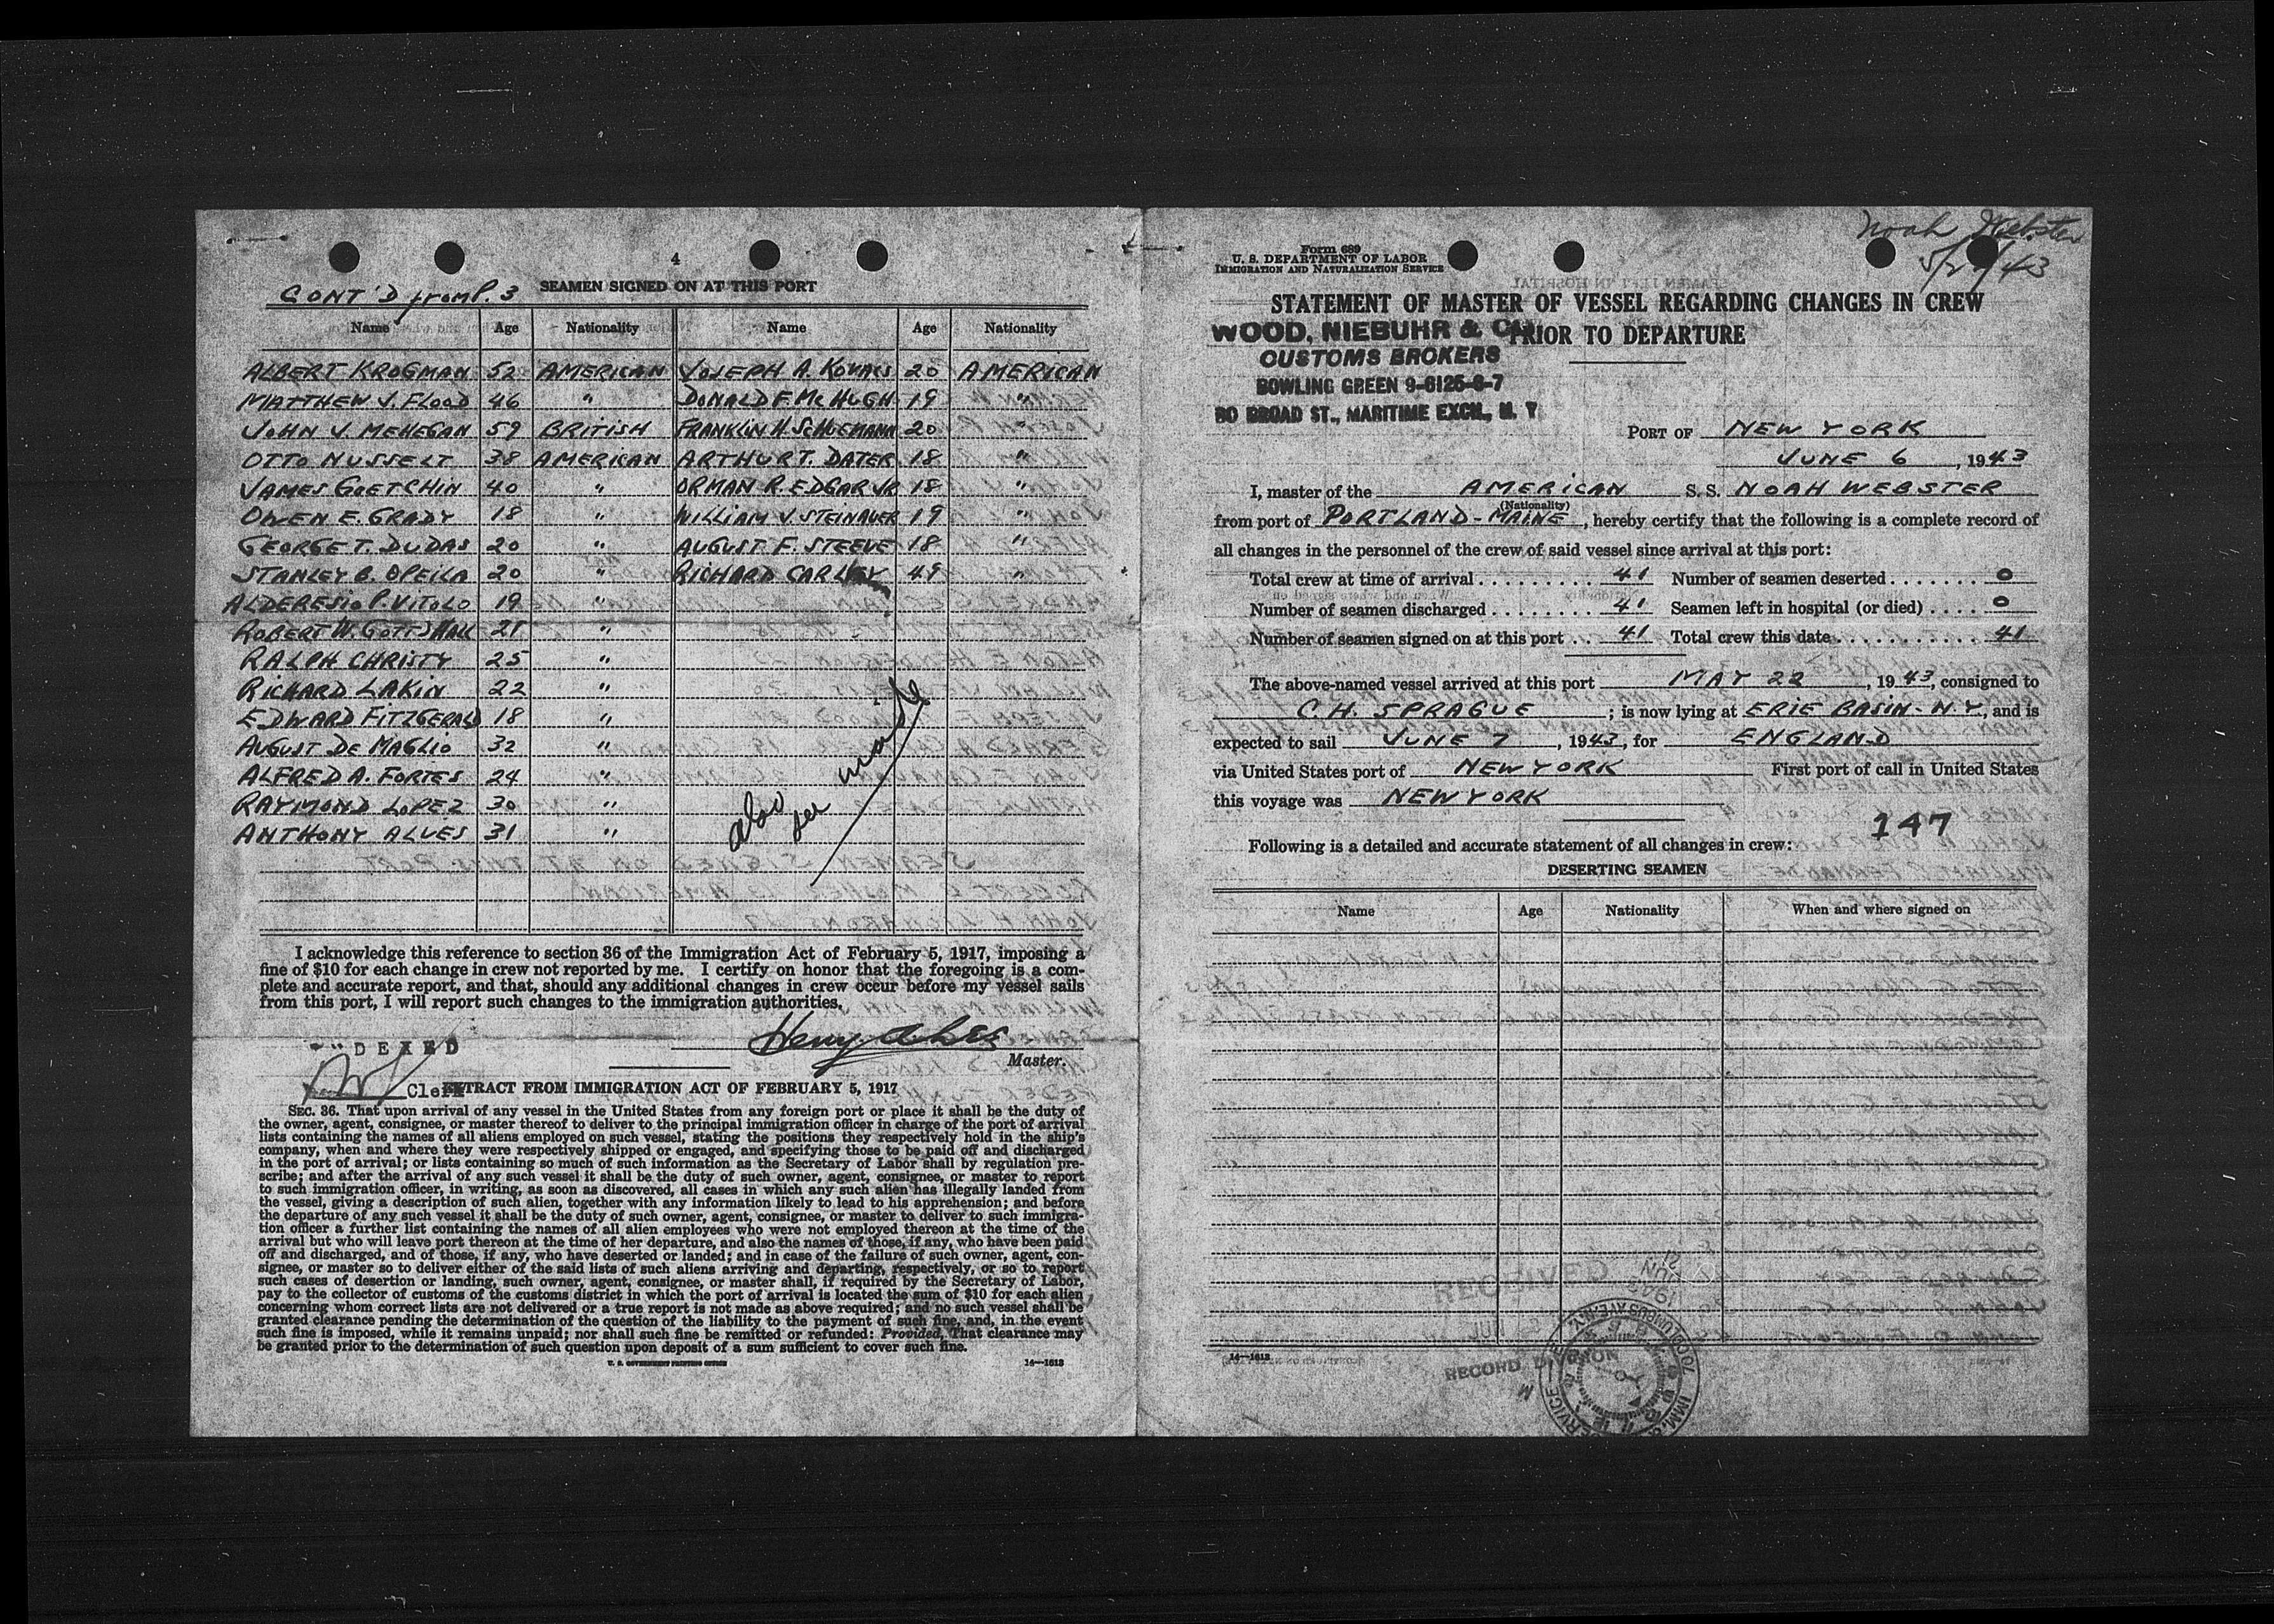 4
CONT'D from P. 3 SEAMEN SIGNED ON AT THIS PORT
Name Age Nationality Name Age Nationality
ALBERT KROGMAN 52 AMERICAN JOSEPH A. KOVACS 20 AMERICAN
MATTHEW J. FLOOD 46 " DONALD F. McHUGH 19 "
JOHN J. MEHEGAN 59 BRITISH FRANKLIN H. SCHUEMANN 20 "
OTTO NUSSELT 38 AMERICAN ARTHUR T. DATER 18 "
JAMES GOETCHIN 40 " ORMAN R. EDGAR JR 18 "
OWEN E. GRADY 18 " WILLIAM J. STEINAUER 19 "
GEORGE T. DUDAS 20 " AUGUST F. STEEVE 18 "
STANLEY B. OPEILA 20 " RICHARD CARLEY 49 "
ALDERESIO P. VITOLO 19 "
ROBERT W. GOTTSHALL 21 "
RALPH CHRISTY 25 "
RICHARD LAKIN 22 "
EDWARD FITZGERALD 18 "
AUGUST DE MAGLIO 32 "
ALFRED A. FORTES 24 "
RAYMOND LOPEZ 30 "
ANTHONY ALVES 31 "
also see inside
I acknowledge this reference to section 36 of the Immigration Act of February 5, 1917, imposing a
fine of $10 for each change in crew not reported by me. I certify on honor that the foregoing is a com-
plete and accurate report, and that, should any additional changes in crew occur before my vessel sails
from this port, I will report such changes to the immigration authorities.
Master.
DEXED
Clerk
EXTRACT FROM IMMIGRATION ACT OF FEBRUARY 5, 1917
SEC. 36. That upon arrival of any vessel in the United States from any foreign port or place it shall be the duty of
the owner, agent, consignee, or master thereof to deliver to the principal immigration officer in charge of the port of arrival
lists containing the names of all aliens employed on such vessel, stating the positions they respectively hold in the ship's
company, when and where they were respectively shipped or engaged, and specifying those to be paid off and discharged
in the port of arrival; or lists containing so much of such information as the Secretary of Labor shall by regulation pre-
scribe; and after the arrival of any such vessel it shall be the duty of such owner, agent, consignee, or master to report
to such immigration officer, in writing, as soon as discovered, all cases in which any such alien has illegally landed from
the vessel, giving a description of such alien, together with any information likely to lead to his apprehension; and before
the departure of any such vessel it shall be the duty of such owner, agent, consignee, or master to deliver to such immigra-
tion officer a further list containing the names of all alien employees who were not employed thereon at the time of the
arrival but who will leave port thereon at the time of her departure, and also the names of those, if any, who have been paid
off and discharged, and of those, if any, who have deserted or landed; and in case of the failure of such owner, agent, con-
signee, or master so to deliver either of the said lists of such aliens arriving and departing, respectively, or so to report
such cases of desertion or landing, such owner, agent, consignee, or master shall, if required by the Secretary of Labor,
pay to the collector of customs of the customs district in which the port of arrival is located the sum of $10 for each alien
concerning whom correct lists are not delivered or a true report is not made as above required; and no such vessel shall be
granted clearance pending the determination of the question of the liability to the payment of such fine, and, in the event
such fine is imposed, while it remains unpaid; nor shall such fine be remitted or refunded: Provided, That clearance may
be granted prior to the determination of such question upon deposit of a sum sufficient to cover such fine.
U. S. GOVERNMENT PRINTING OFFICE 14—1613
Noah Webster
Form 689
U. S. DEPARTMENT OF LABOR
IMMIGRATION AND NATURALIZATION SERVICE
STATEMENT OF MASTER OF VESSEL REGARDING CHANGES IN CREW
PRIOR TO DEPARTURE
WOOD, NIEBUHR & CO.
CUSTOMS BROKERS
BOWLING GREEN 9-6125-6-7
80 BROAD ST., MARITIME EXCH., N. Y.
PORT OF NEW YORK
JUNE 6, 1943
I, master of the AMERICAN S. S. NOAH WEBSTER
(Nationality)
from port of PORTLAND-MAINE, hereby certify that the following is a complete record of
all changes in the personnel of the crew of said vessel since arrival at this port:
Total crew at time of arrival . . . . . . . . . 41 Number of seamen deserted . . . . . . . 0
Number of seamen discharged . . . . . . . . 41 Seamen left in hospital (or died) . . . . 0
Number of seamen signed on at this port . . 41 Total crew this date . . . . . . . . . . . . 41
The above-named vessel arrived at this port MAY 22, 1943, consigned to
C. H. SPRAGUE; is now lying at ERIE BASIN - N.Y., and is
expected to sail JUNE 7, 1943, for ENGLAND
via United States port of NEW YORK First port of call in United States
this voyage was NEW YORK
147
Following is a detailed and accurate statement of all changes in crew:
DESERTING SEAMEN
Name Age Nationality When and where signed on
14—1613
RECEIVED
RECORD DIVISION